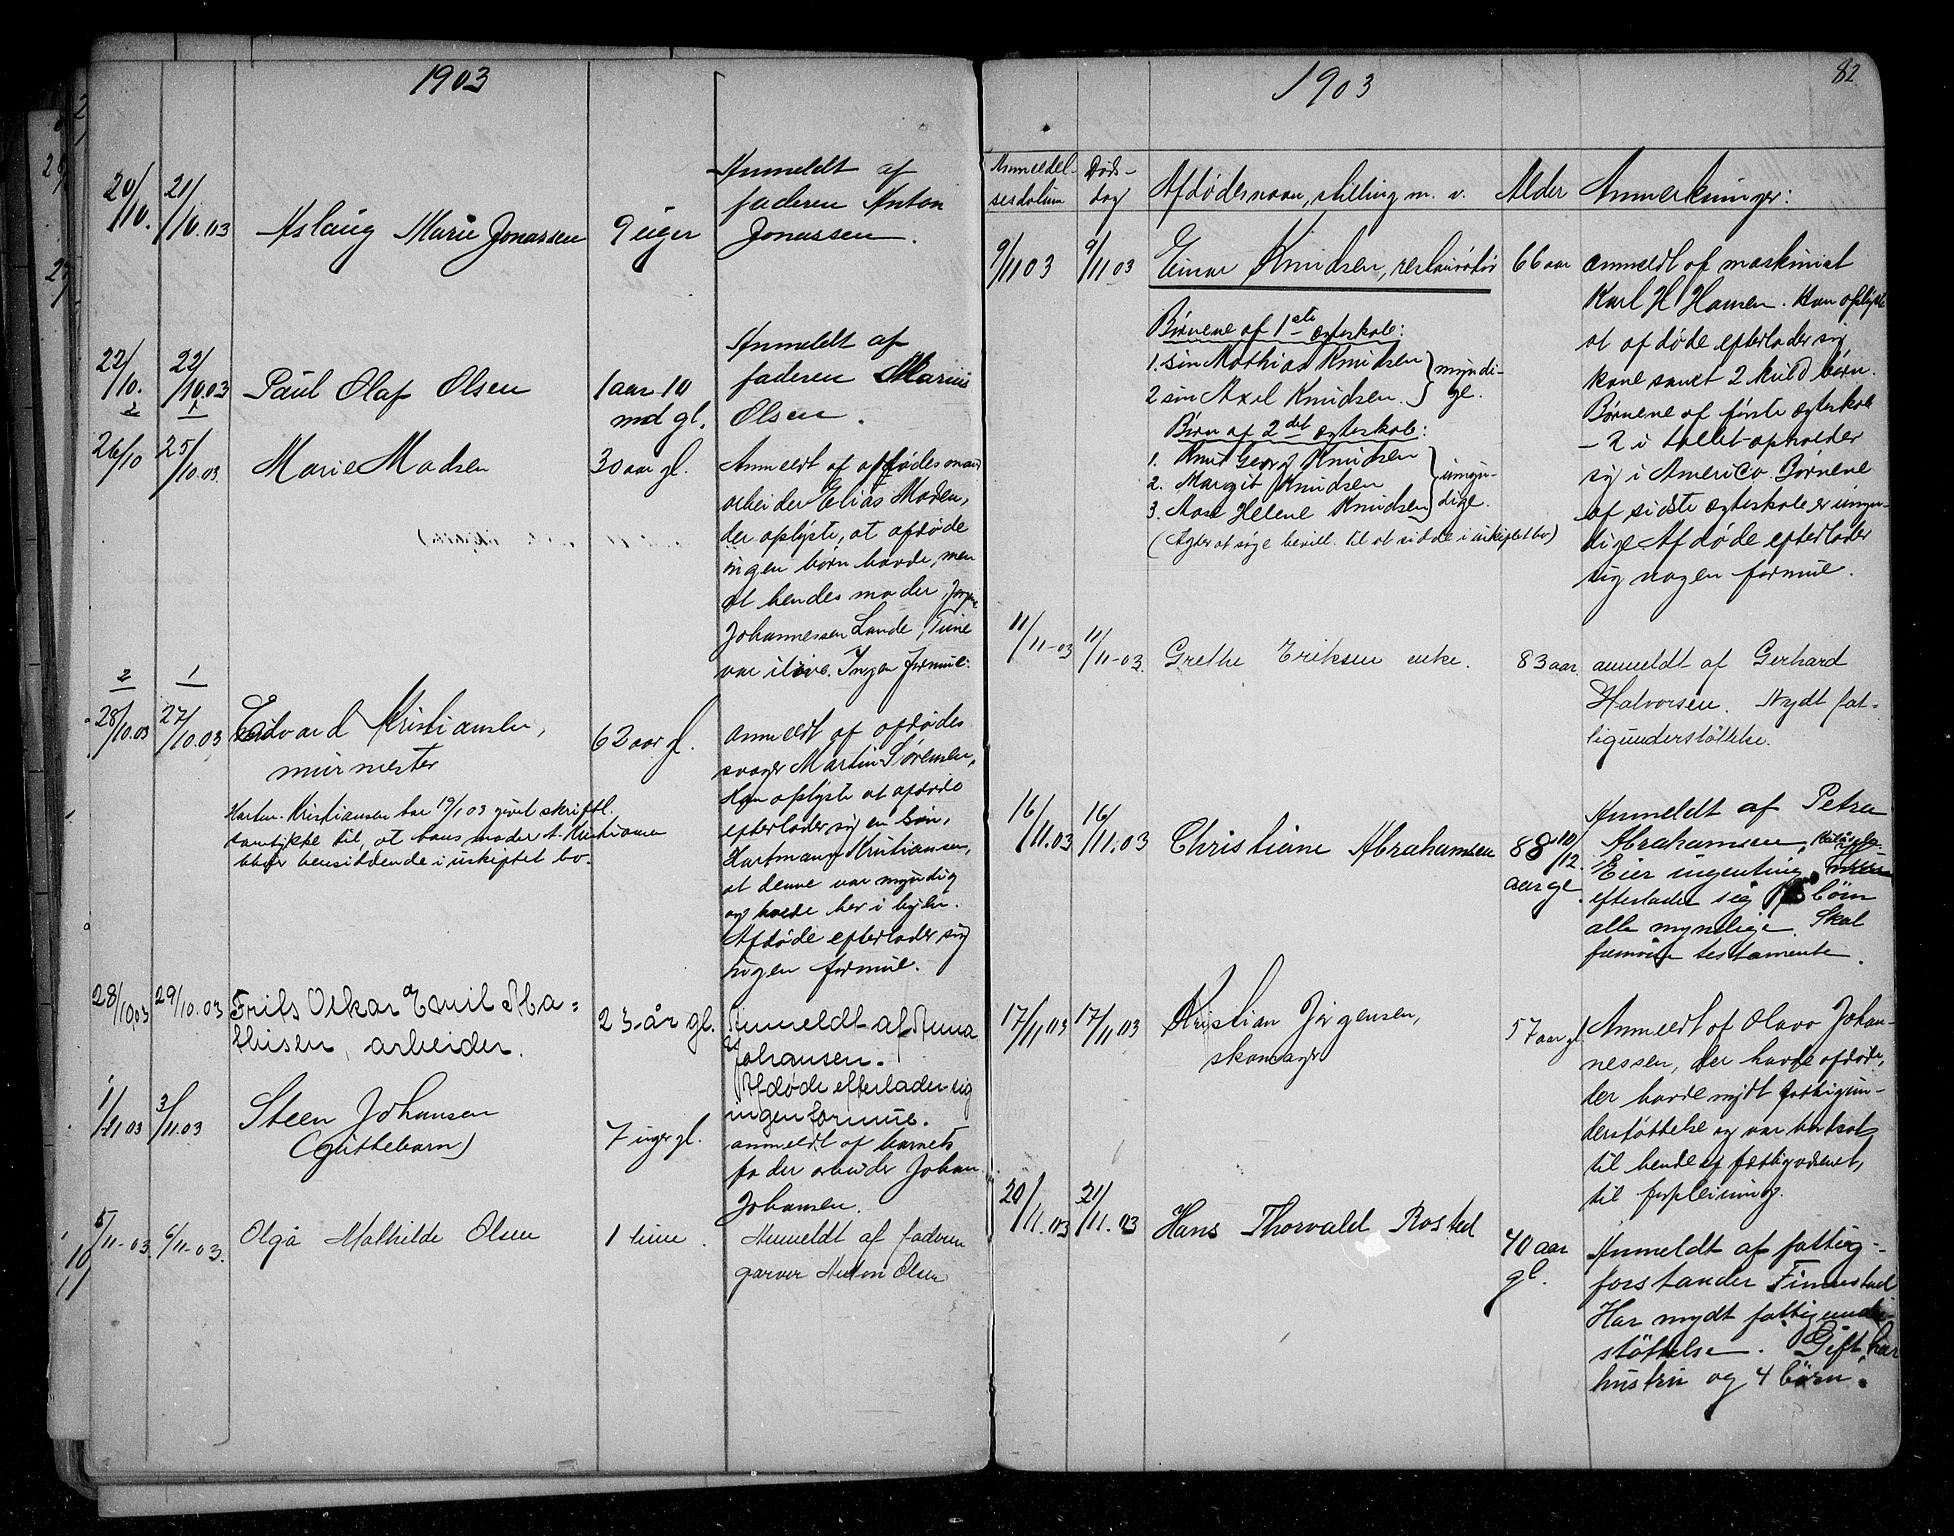 1903
20/10. 21/10.03 Aslaug Marie Jonassen 9 uger Anmeldt af
faderen Anton
Jonassen.
22/10. 22/10.03 Paul Olaf Olsen 1 aar 10
md gl.
Anmeldt af
faderen Marius
Olsen.
2 1
26/10 25/10.03. Marie Madsen 30 aar gl. Anmeldt af afdødes mand
arbeider Elias Madsen,
der oplyste, at afdøde
ingen børn havde, men
at hendes moder
Johannessen Lande, Tune
var ilive. Ingen formue.
2 1
28/10.03 27/10.03 Edvard Kristiansen,
murmester
62 aar gl.
anmeldt af afdødes
svoger Martin Sørensen,
Han oplyste at afdøde
efterlader sig en søn,
Hartmann Kristiansen,
at denne var myndig
og boede her i byen.
Afdøde efterlader sig
ingen formue.
Hartm. Kristiansen har 19/1 03 givet skriftl.
samtykke til, at hans moder
blir hensiddende i uskiftet bo.
28/10.03 29/10.03 Frits Oskar Emil Ma=
thisen, arbeider.
23 år gl. Anmeldt af Anna
Johansen.
Afdøde efterlader sig
ingen formue.
1/11 03 3/11.03 Steen Johansen
(Guttebarn)
7 uger gl. anmeldt af barnets
fader arbeider Johan
Johansen.
5/11-03. 6/11-03. Olga Mathilde Olsen 1 time. Anmeldt af faderen
garver Anton Olsen
1903
82
Anmeldel-
sesdatum
Døds-
dag
Afdødes navn, stilling m. v. Alder Anmerkninger:
9/11 03 9/11 03 Einar Knudsen, restauratør 66 aar anmeldt af maskinist
Karl H Hansen. Han oplyste
at afdøde efterlader sig
kone samt 2 kuld børn.
Børnene af første egteskab
- 2 i tallet - opholder
sig i America. Børnene
af sidste egteskab er umyn-
dige. Afdøde efterlader
sig nogen formue.
Børnene af 1ste egteskab:
1. søn Mathias Knudsen
2 søn Axel Knudsen.
myndi-
ge.
Børn af 2det egteskab:
1. Knut Georg Knudsen
2. Margit Knudsen
3. Aase Helene Knudsen
umyn-
dige.
(Agter at søge bevill. til at sidde i uskiftet bo)
11/11-03 11/11-03. Grethe Eriksen enke. 83 aar. anmeldt af Gerhard
Halvorsen. Nydt fat-
tigunderstøttelse.
16/11.03 16/11.03 Christiane Abrahamsen 88 10/12.
aar gl.
Anmeldt af Petrea
Abrahamsen,
Eier ingenting.
efterlader sig børn
alle myndige. Skal
fremvise testamente.
17/11 03 17/11 03 Kristian Jørgensen,
skomager
57 aar gl Anmeldt af Olava Johan-
nessen, der havde afdøde,
der havde nydt fattigun-
derstøttelse og var bortsat
til hende af fattigvæsenet,
til forpleining.
20/11.03 21/11.03 Hans Thorvald Rosted
40 aar
gl.
Anmeldt af fattig-
forstander Finnestad
Har nydt fattigunder-
støttelse. Gift, har
hustru og 4 børn.